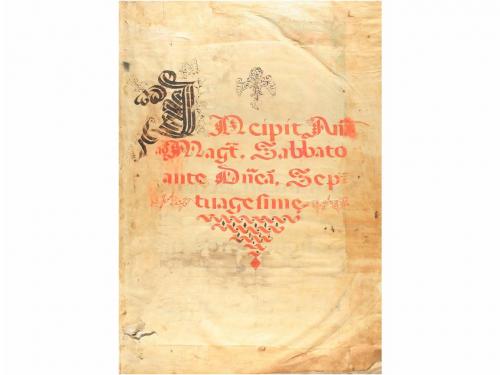 INcipit Añ
ad Magt̃. Sabbato
ante Dñcã. Sep-
tuagesime